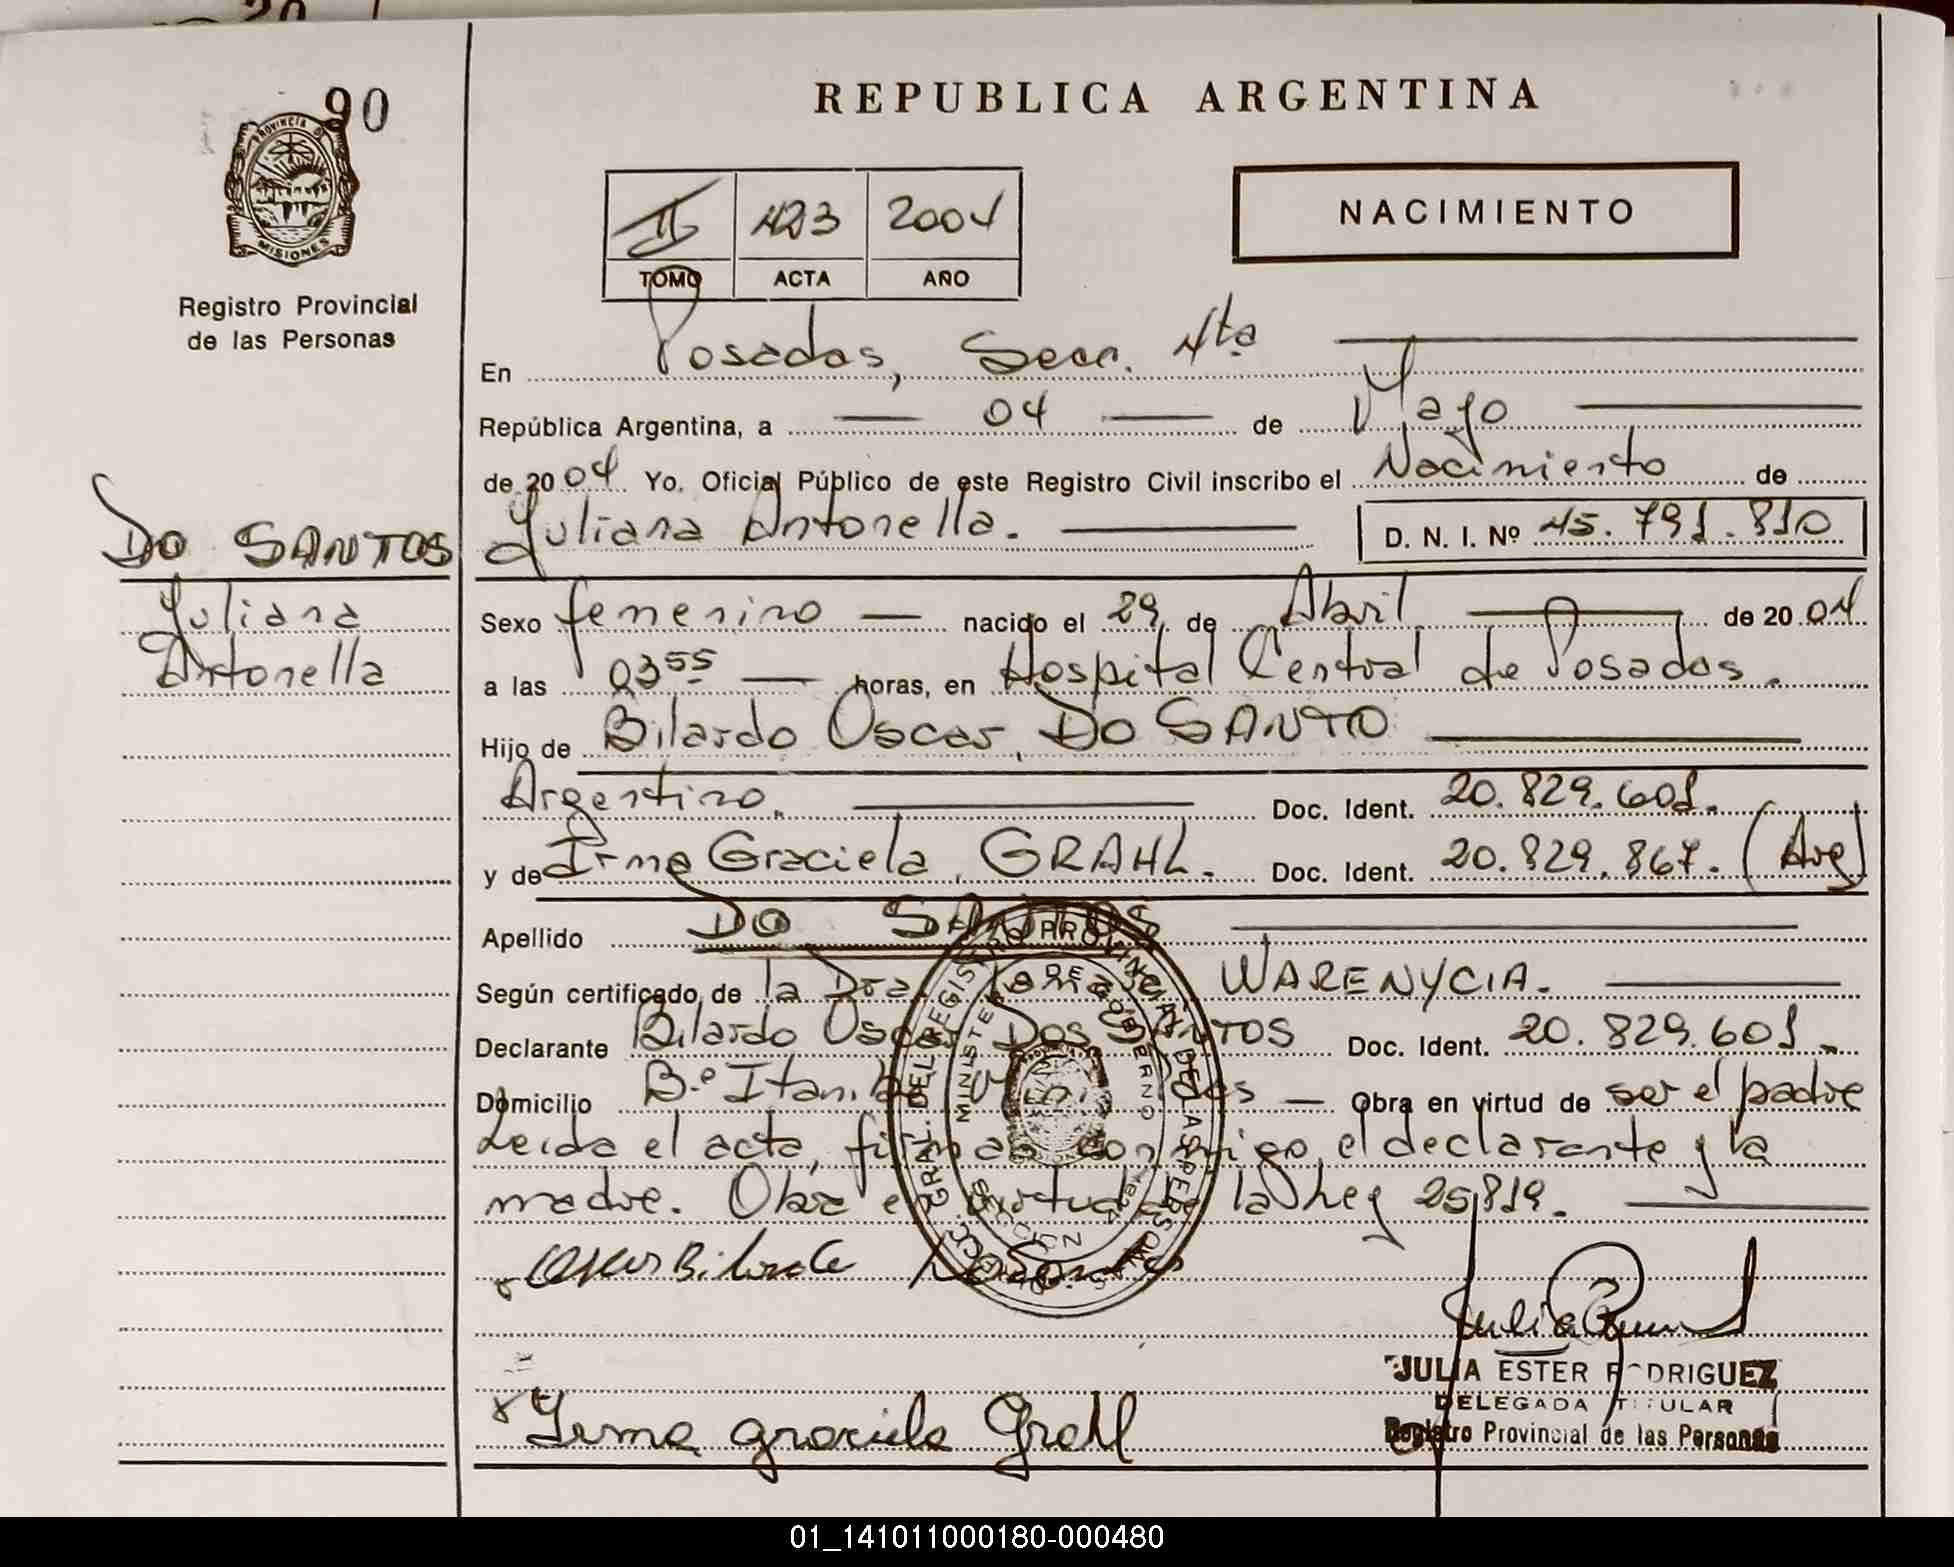 90
PROVINCIA DE
MISIONES
Registro Provincial
de las Personas
REPUBLICA ARGENTINA
II 423 2004
TOMO ACTA AÑO
NACIMIENTO
En Posadas, Secc. 4ta
República Argentina, a 04 de Mayo
de 2004 Yo. Oficial Público de este Registro Civil inscribo el Nacimiento de
DO SANTOS
Juliana
Antonella
Juliana Antonella. D. N. I. Nº 45.791.810
Sexo femenino nacido el 29 de Abril de 2004
a las 03 55 horas, en Hospital Central de Posadas.
Hijo de Bilardo Oscar, DO SANTO
Argentino. Doc. Ident. 20.829.601.
y de Irma Graciela, GRAHL. Doc. Ident. 20.829.867. (Arg)
Apellido DO SANTOS
Según certificado de la Dra. WARENYCIA.
Declarante Bilardo Oscar DOS SANTOS Doc. Ident. 20.829.601.
Domicilio Bº Obra en virtud de ser el padre
Leida el acta, firman conmigo el declarante y la
madre. Obra en virtud la Ley 25.819.
Oscar Bilardo
JULIA ESTER RODRIGUEZ
DELEGADA TITULAR
Registro Provincial de las Personas
x Irma graciela Grahl
01_141011000180-000480